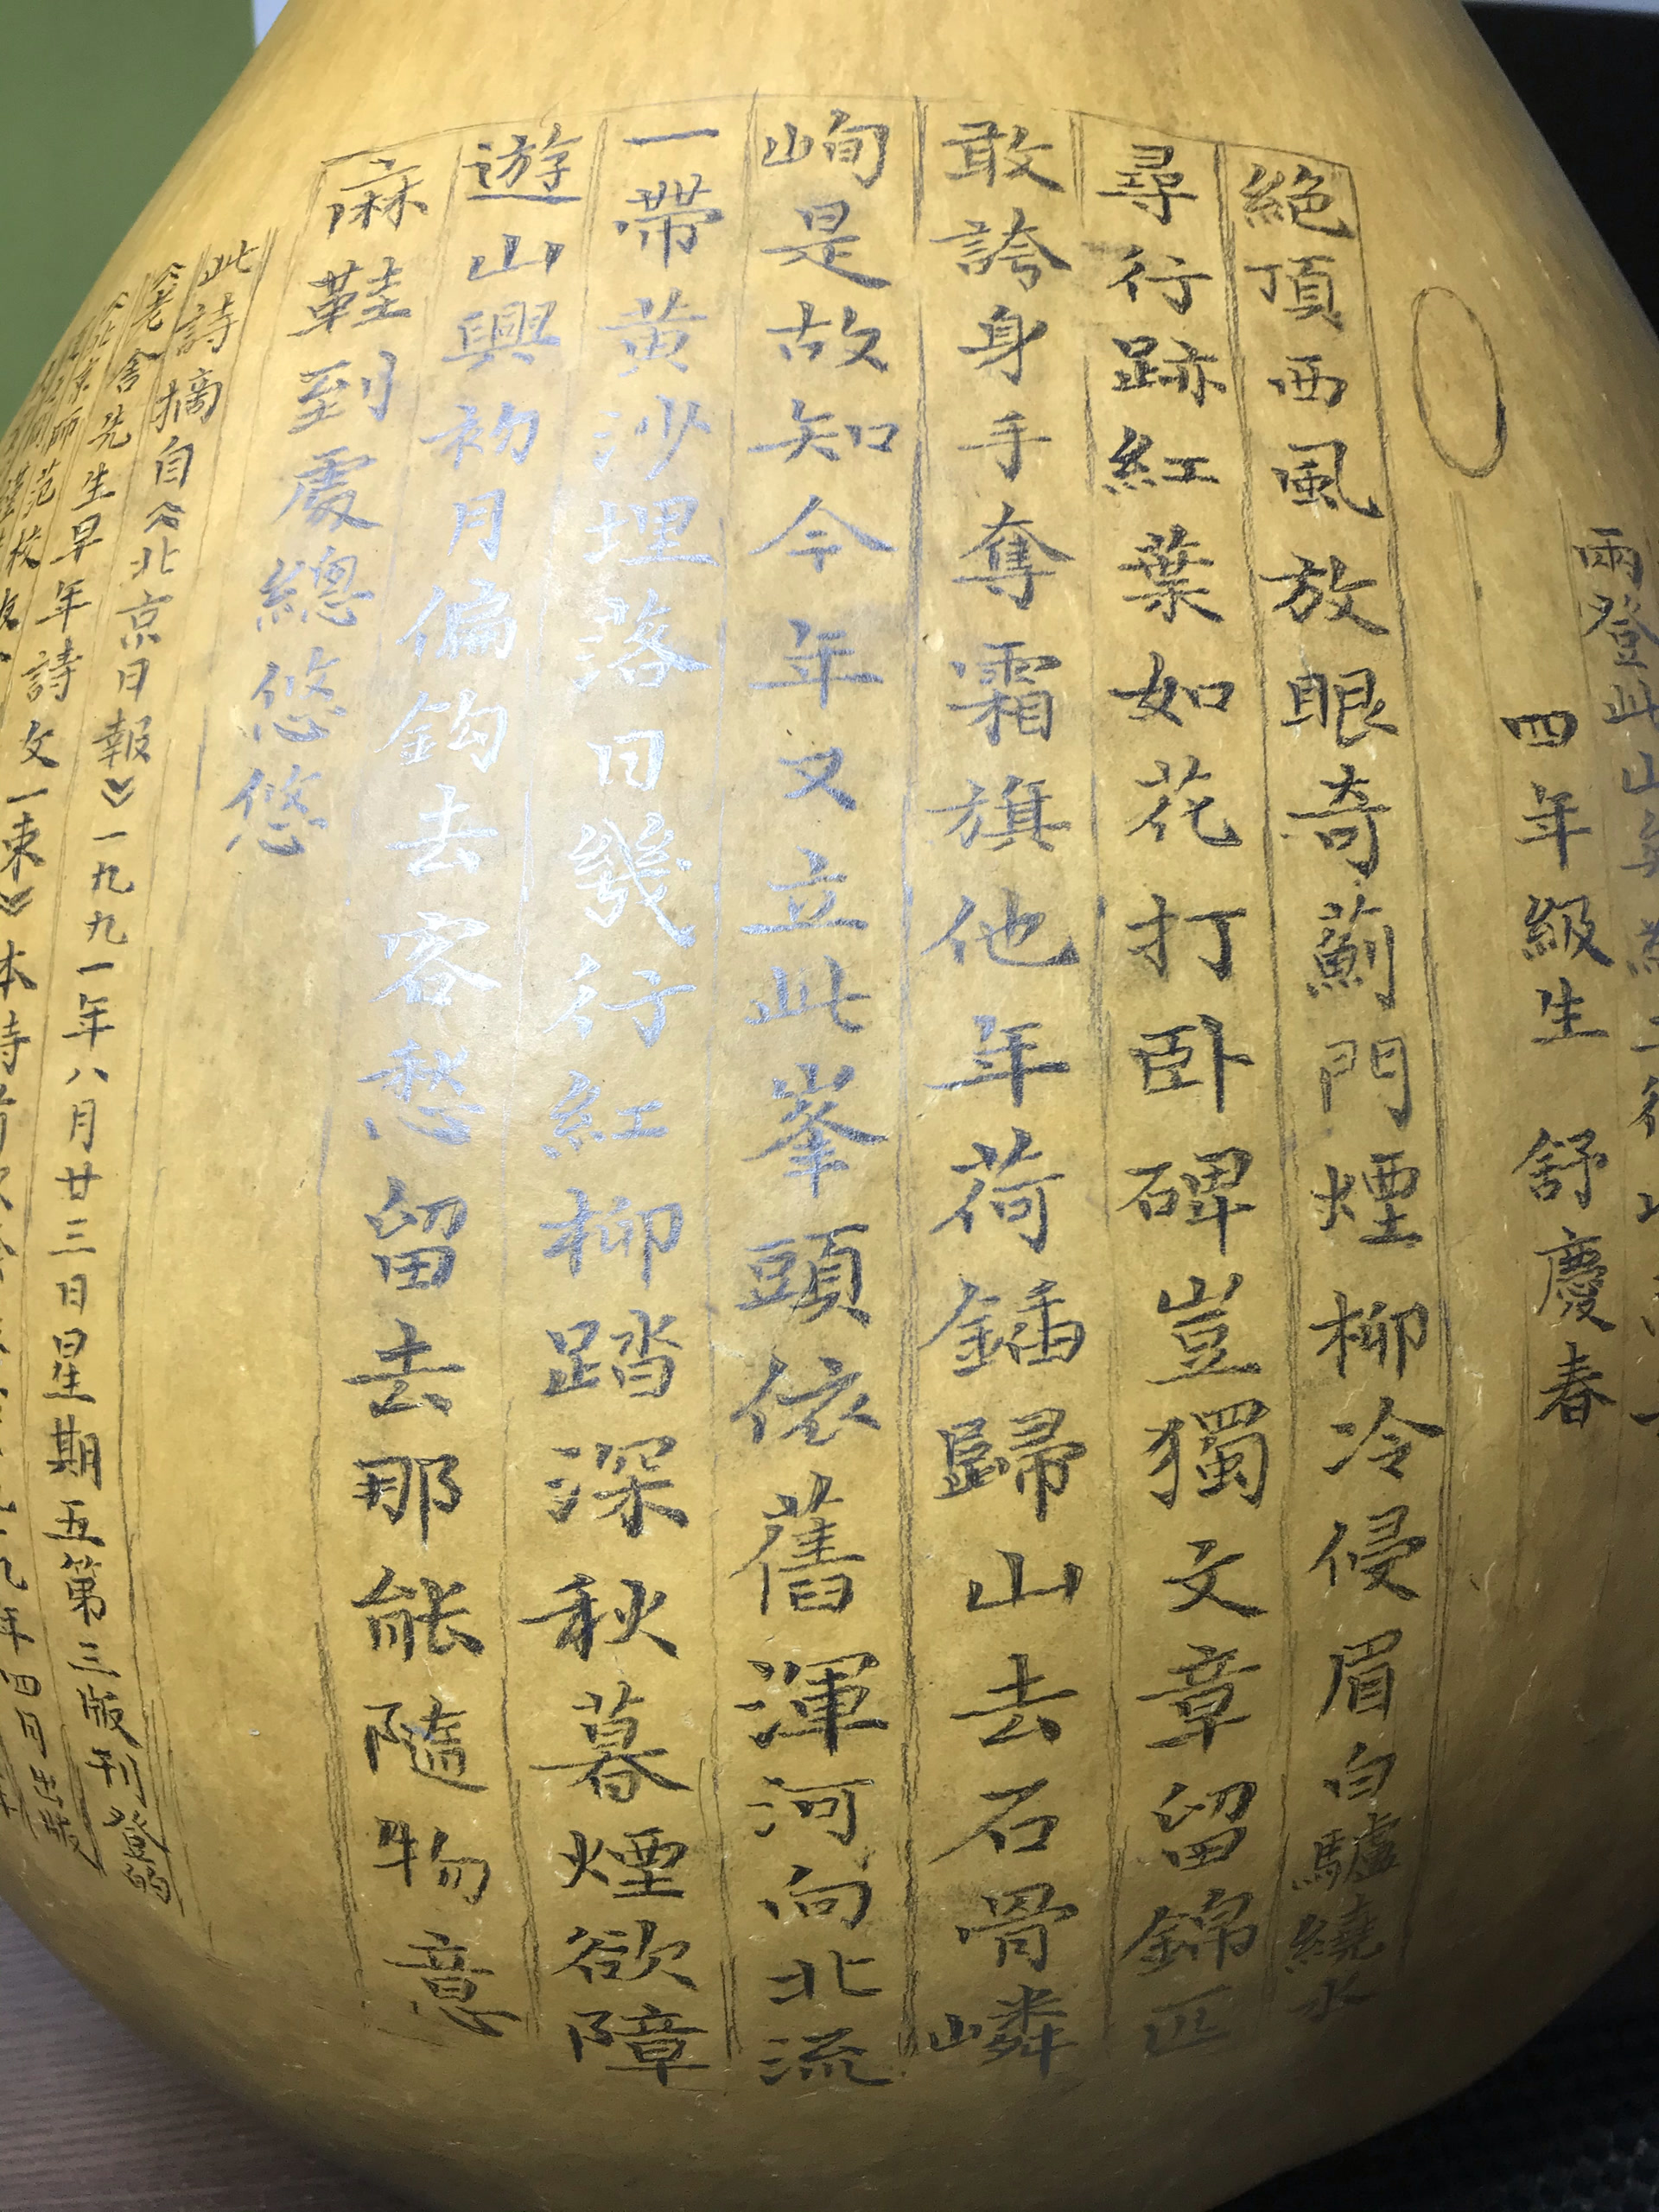 兩登此山
四年級生 舒慶春
絕頂西風放眼奇薊門煙柳冷侵眉白驢繞水
尋行跡紅葉如花打卧碑豈獨文章留錦匹
敢誇身手奪霜旗他年荷鍤歸山去石骨嶙
峋是故知今年又立此峯頭依舊渾河向北流
一帶黃沙埋落日幾行紅柳踏深秋暮煙欲障
遊山興初月偏鈎去客愁留去那能隨物意
麻鞋到處總悠悠
此詩摘自《北京日報》一九九一年八月廿三日星期五第三版刊登的
《老舍先生早年詩文一束》本詩
《北京師范校友
年四月出版